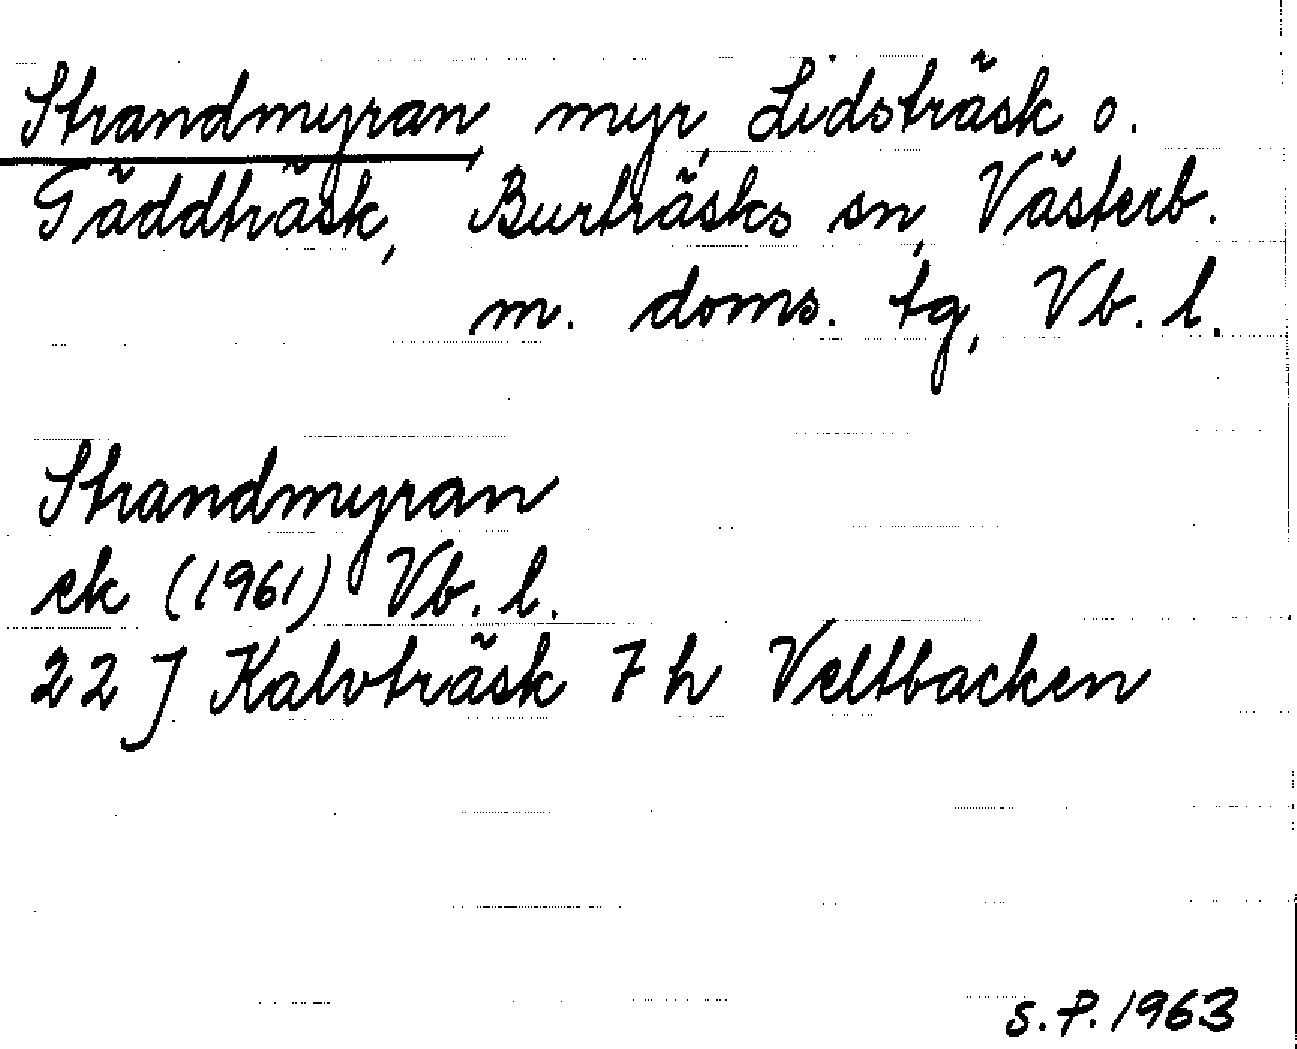 Strandmyran, myr, Lidsträsk o.
Gäddträsk, Burträsks sn, Västerb.
m. doms. tg, Vb. l.
Strandmyran
ek (1961) Vb. l.
22 J Kalvträsk 7 h Veltbacken
S.P. 1963